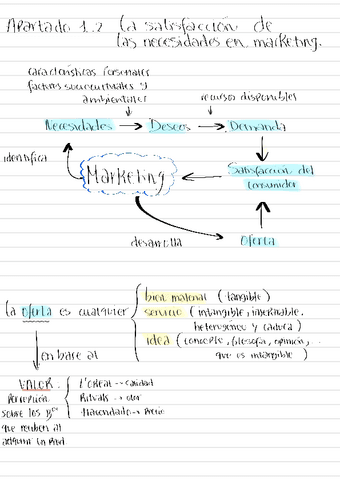 Apartado 1.2 La satisfacción de
las necesidades en marketing.
características personales
factores socioculturales y
ambientales
recursos disponibles
Necesidades → Deseos → Demanda
identifica
Marketing
Satisfacción del
consumidor
desarrolla
Oferta
La oferta es cualquier
bien material (tangible)
servicio (intangible, inseparable,
heterogeneo y caduca)
idea (concepto, filosofía, opinión,
que es intangible)
en base al
VALOR.
Percepción
sobre los
que reciben al
adquirir un Prod.
L'Oréal → calidad
Rituals → olor
Hacendado → Precio